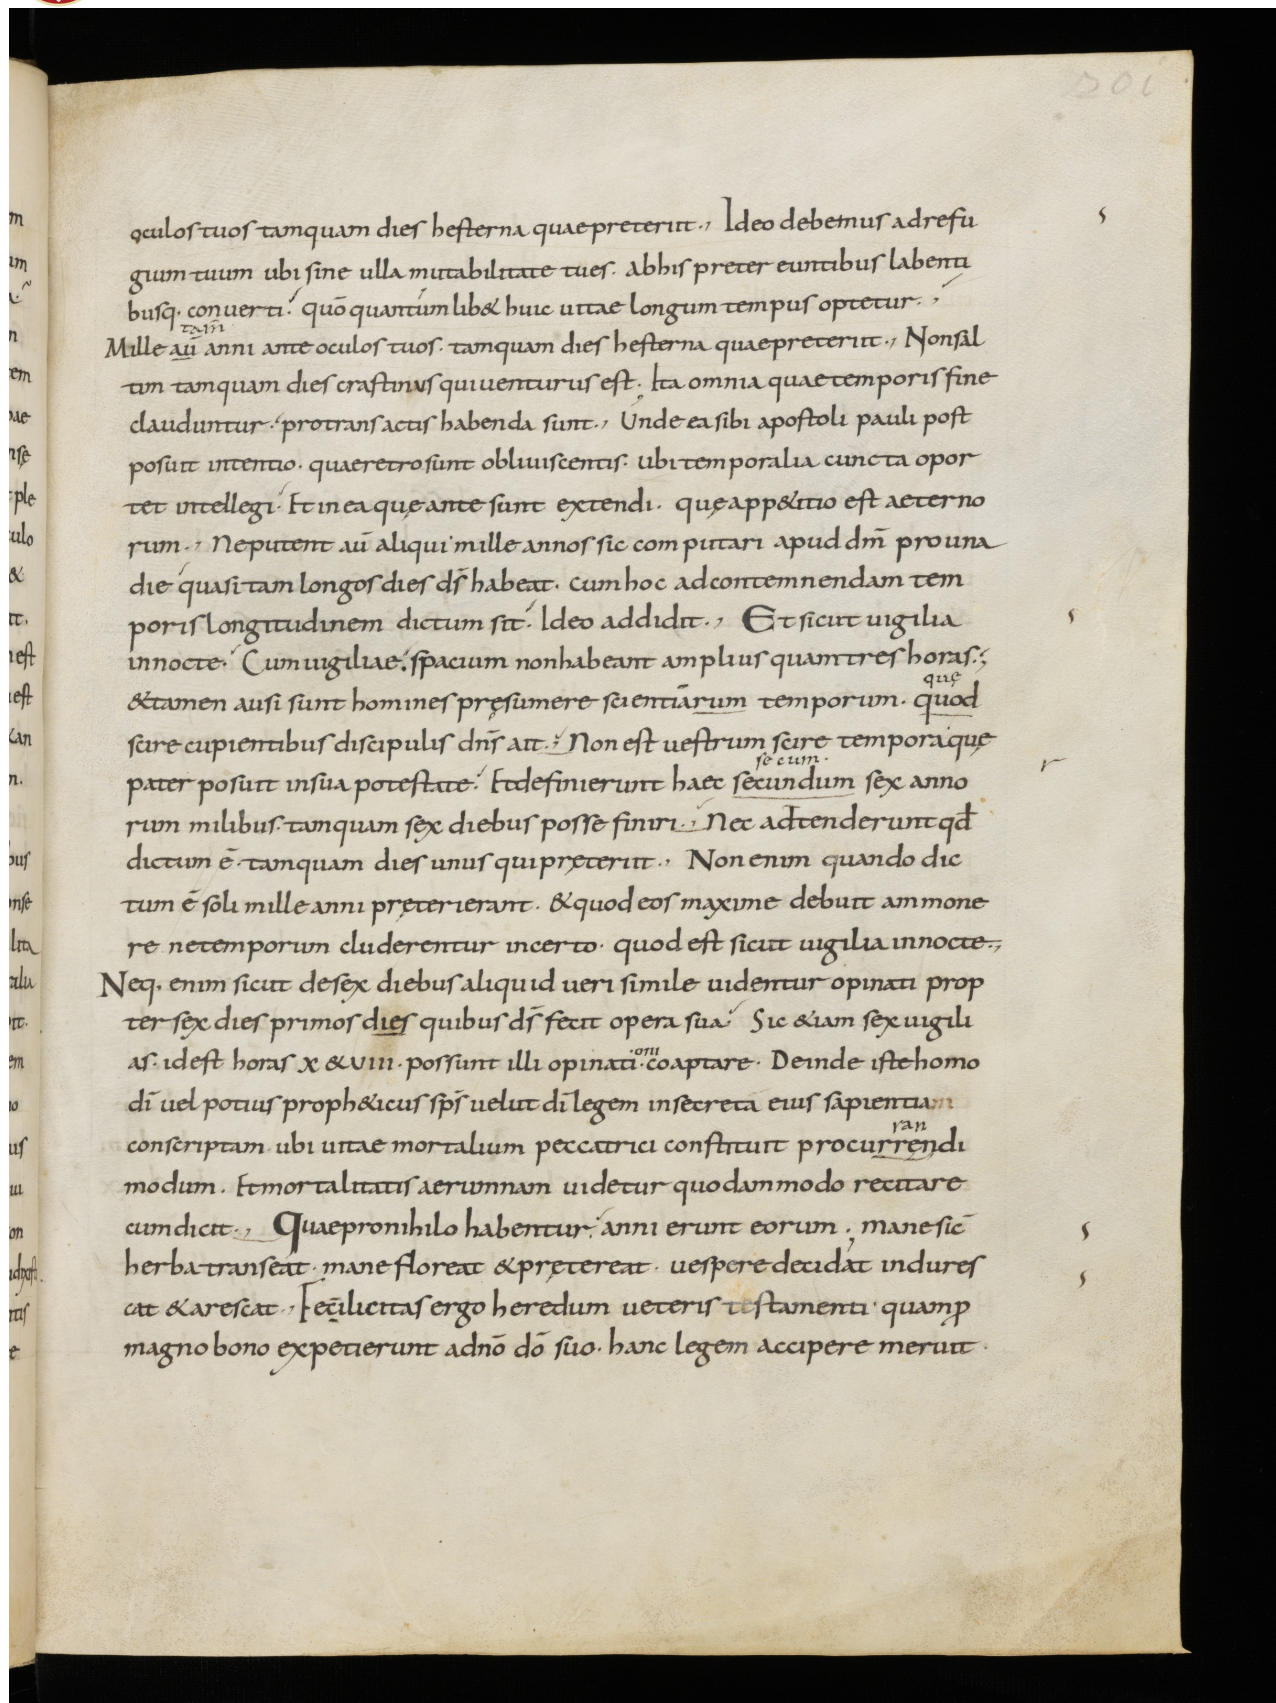 201
oculos tuos tamquam dies hesterna quae preteriit., Ideo debemus ad refu
gium tuum ubi sine ulla mutabilitate tu es. ab his preter euntibus labenti
busq. converti. quō quantumlib& huic uitae longum tempus optetur.,
tam̄
Mille aū anni ante oculos tuos. tamquam dies hesterna quae preteriit., Non sal
tim tamquam dies crastinus qui uenturus est. Ita omnia quae temporis fine
clauduntur. pro transactis habenda sunt., Unde ea sibi apostoli pauli post
posuit intentio. quae retro sunt obliuiscentis. ubi temporalia cuncta opor
tet intellegi. Et in ea quę ante sunt extendi. quę app&itio est aeterno
rum., Ne putent aū aliqui mille annos sic computari apud dm̄ pro una
die quasi tam longos dies ds̄ habeat. cum hoc ad contemnendam tem
poris longitudinem dictum sit. Ideo addidit., Et sicut uigilia
in nocte. Cum uigiliae spacium non habeant amplius quam tres horas.,
quę
&tamen ausi sunt homines pręsumere scientiārum temporum. quod
scire cupientibus discipulis dn̄s ait., Non est uestrum scire tempora quę
secum.
pater posuit in sua potestate. Et definierunt haec secundum sex anno
rum milibus. tamquam sex diebus posse finiri., Nec adtenderunt qd̄
dictum ē. tamquam dies unus qui pręteriit., Non enim quando dic
tum ē soli mille anni pręterierant. & quod eos maxime debuit ammone
re ne temporum cluderentur incerto. quod est sicut uigilia in nocte.,
Neq. enim sicut de sex diebus aliquid ueri simile uidentur opinati prop
ter sex dies primos dies quibus ds̄ fecit opera sua. Sic &iam sex uigili
oni
as. id est horas x & VIII. possunt illi opinati. coaptare. Deinde iste homo
dī uel potius proph&icus sps̄ uelut dī legem in secreta eius sapientiam
ran
conscriptam. ubi uitae mortalium peccatrici constituit procurrendi
modum. Et mortalitatis aerumnam uidetur quodam modo recitare
cum dicit., Quae pro nihilo habentur. anni erunt eorum. mane sic̄
herba transeat. mane floreat & pręetereat. uespere decidat indures
cat & arescat., Fec̄ilicitas ergo heredum ueteris testamenti. quam ꝓ
magno bono expetierunt ad nō dō suo. hanc legem accipere meruit.